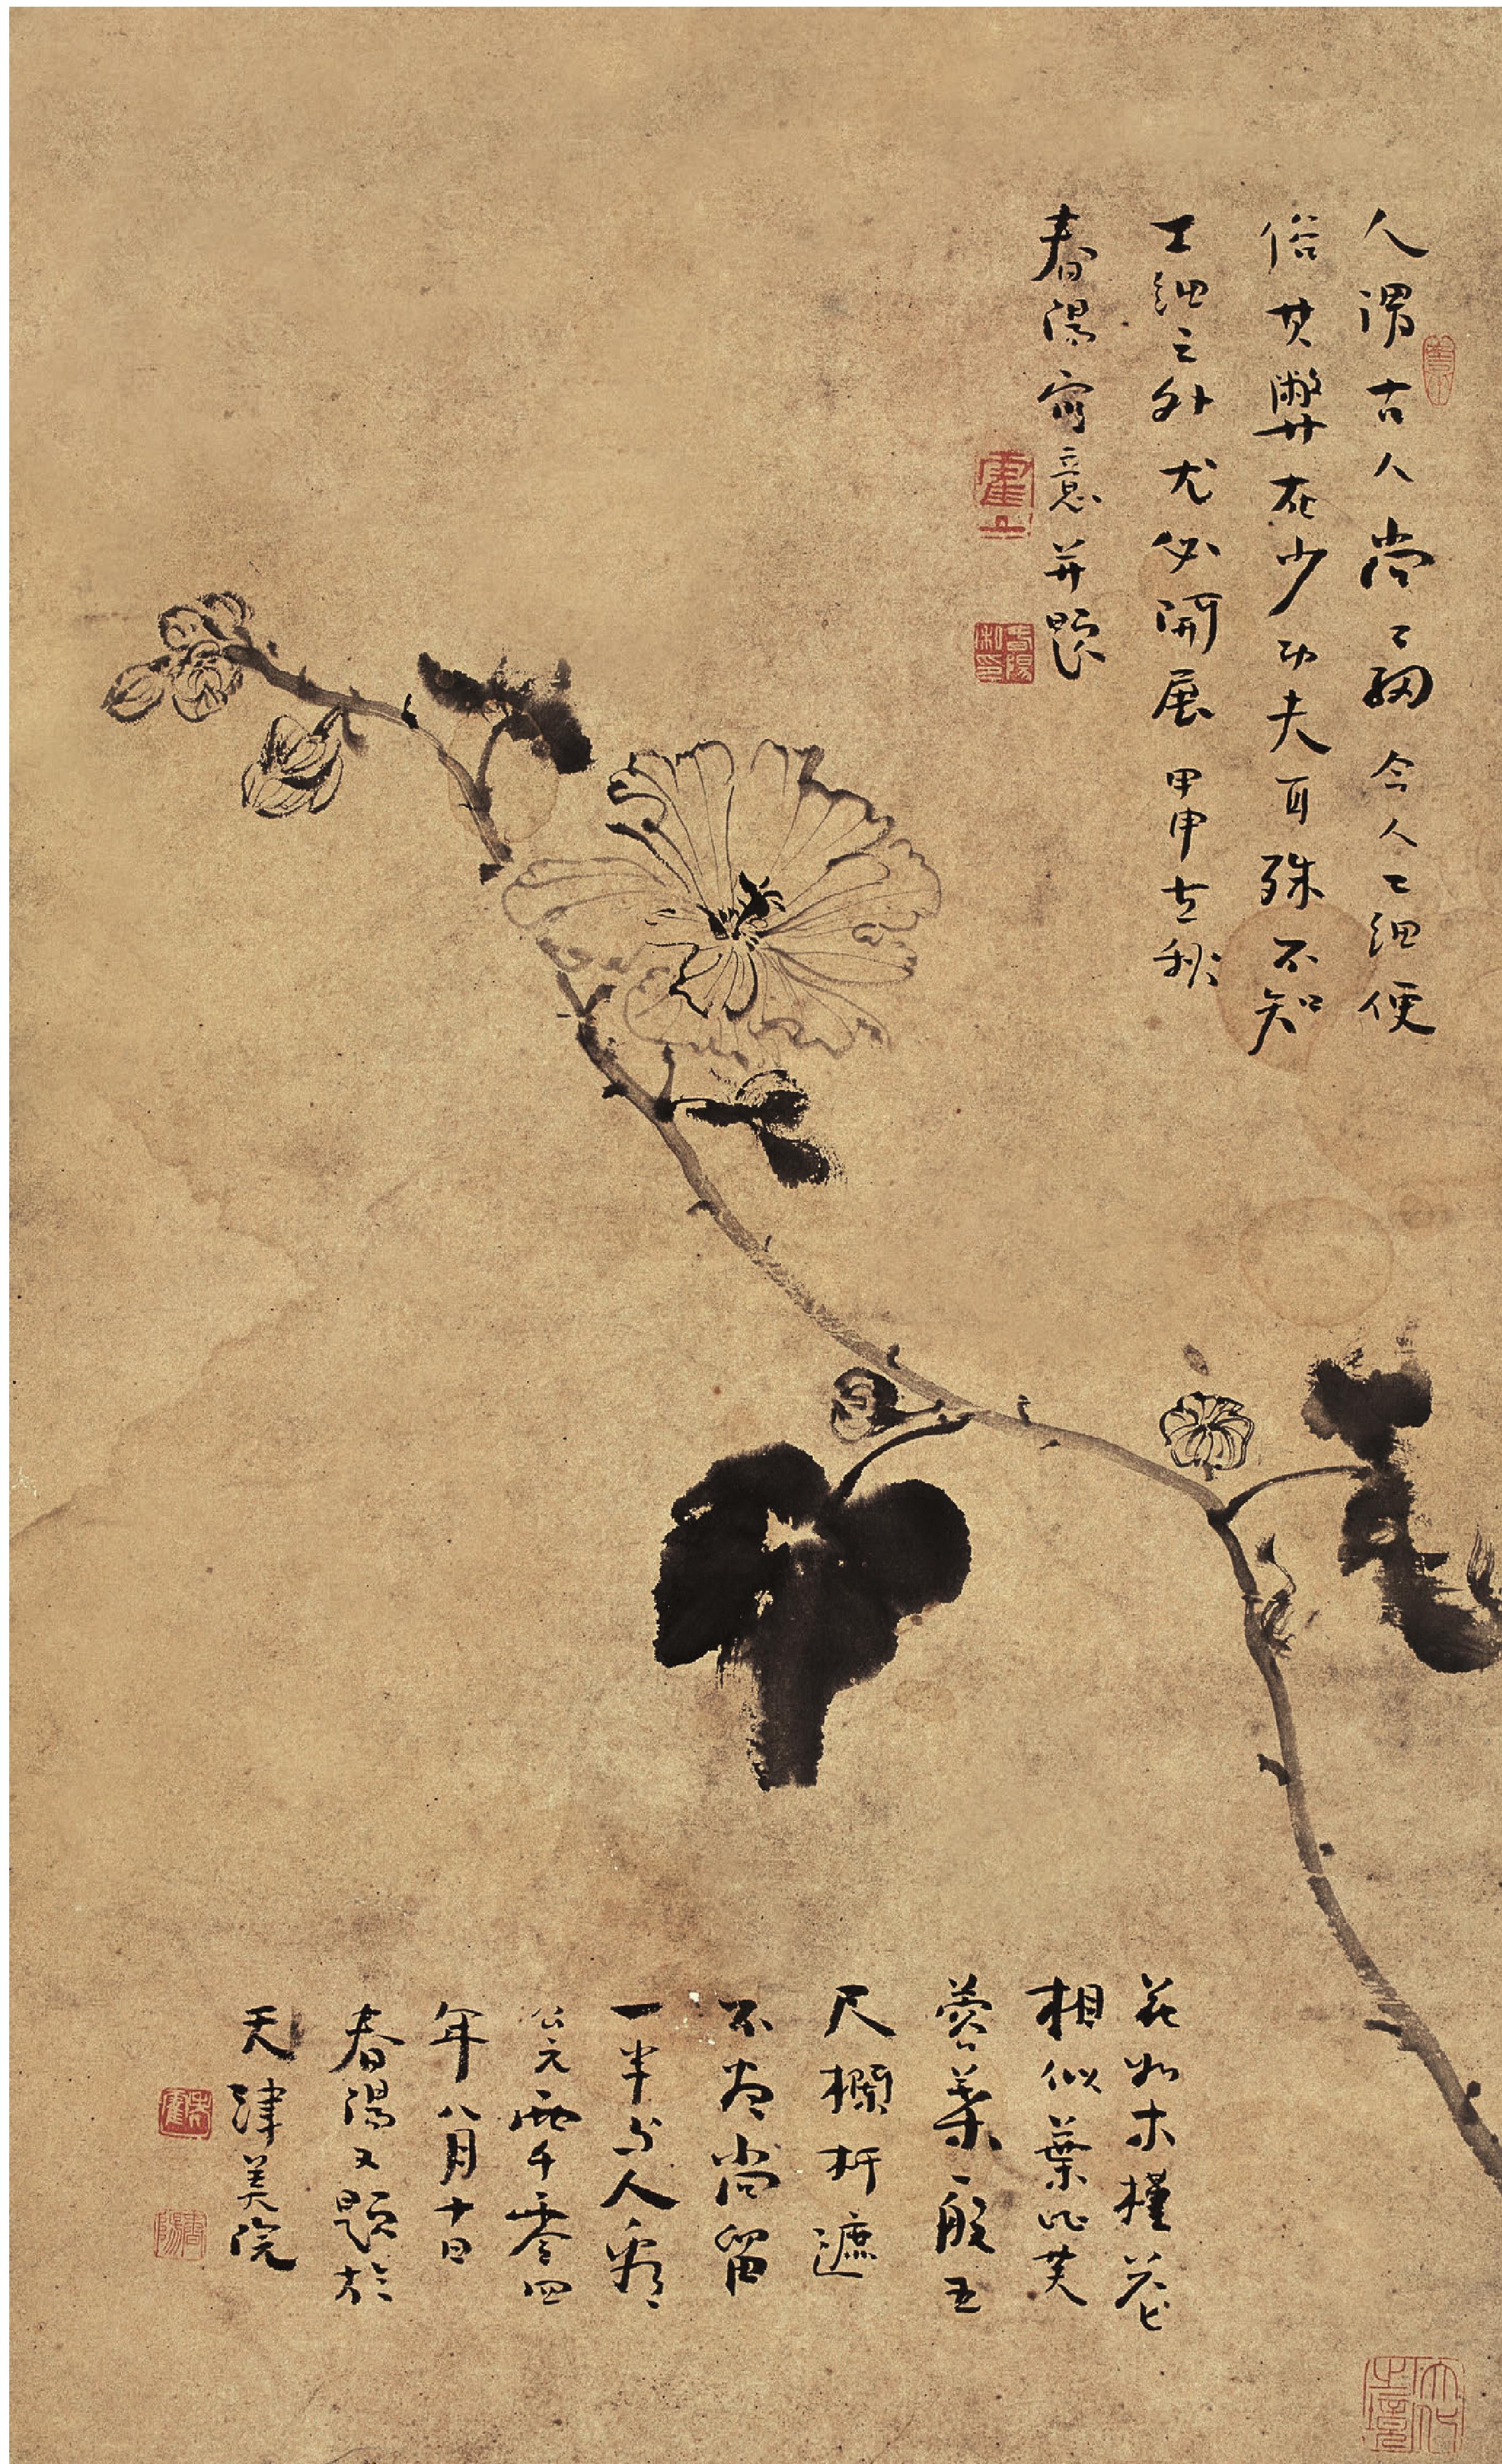 人谓古人尚工细今人工细便
俗其弊在少功夫耳殊不知
工细之外尤必開展甲申立秋
春陽寫意并題
花如木槿花
相似葉比芙
蓉葉一般五
尺欄杆遮
不盡尚留
一半与人看
公元兩千零四
年八月十日
春陽又題於
天津美院
春陽